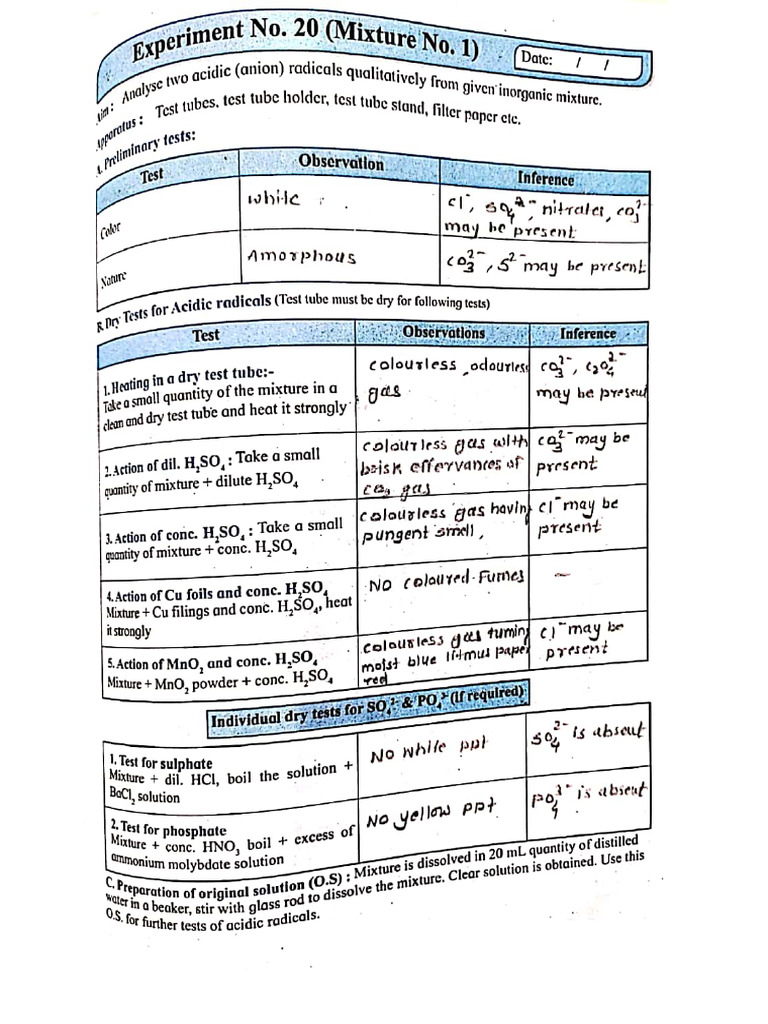 Experiment No. 20 (Mixture No. 1)
Date: / /
Aim : Analyse two acidic (anion) radicals qualitatively from given inorganic mixture.
Apparatus : Test tubes, test tube holder, test tube stand, filter paper etc.
A. Preliminary tests:
Test Observation Inference
Color
white
Cl⁻, SO₄²⁻, nitrates, CO₃²⁻
may be present
Nature
Amorphous
CO₃²⁻, S²⁻ may be present
B. Dry Tests for Acidic radicals (Test tube must be dry for following tests)
Test Observations Inference
1. Heating in a dry test tube:-
Take a small quantity of the mixture in a
clean and dry test tube and heat it strongly
colourless, odourless
gas
CO₃²⁻, C₂O₄²⁻
may be present
2. Action of dil. H₂SO₄ : Take a small
quantity of mixture + dilute H₂SO₄
colourless gas with
brisk effervances of
CO₂ gas
CO₃²⁻ may be
present
3. Action of conc. H₂SO₄ : Take a small
quantity of mixture + conc. H₂SO₄
colourless gas having
pungent smell,
Cl⁻ may be
present
4. Action of Cu foils and conc. H₂SO₄
Mixture + Cu filings and conc. H₂SO₄, heat
it strongly
NO coloured Fumes
—
5. Action of MnO₂ and conc. H₂SO₄
Mixture + MnO₂ powder + conc. H₂SO₄
colourless gas turning
moist blue litmus paper
red
Cl⁻ may be
present
Individual dry tests for SO₄²⁻ & PO₄³⁻ (if required)
1. Test for sulphate
Mixture + dil. HCl, boil the solution +
BaCl₂ solution
No white ppt
SO₄²⁻ is absent
2. Test for phosphate
Mixture + conc. HNO₃ boil + excess of
ammonium molybdate solution
No yellow ppt
PO₄³⁻ is absent
C. Preparation of original solution (O.S) : Mixture is dissolved in 20 mL quantity of distilled
water in a beaker, stir with glass rod to dissolve the mixture. Clear solution is obtained. Use this
O.S. for further tests of acidic radicals.